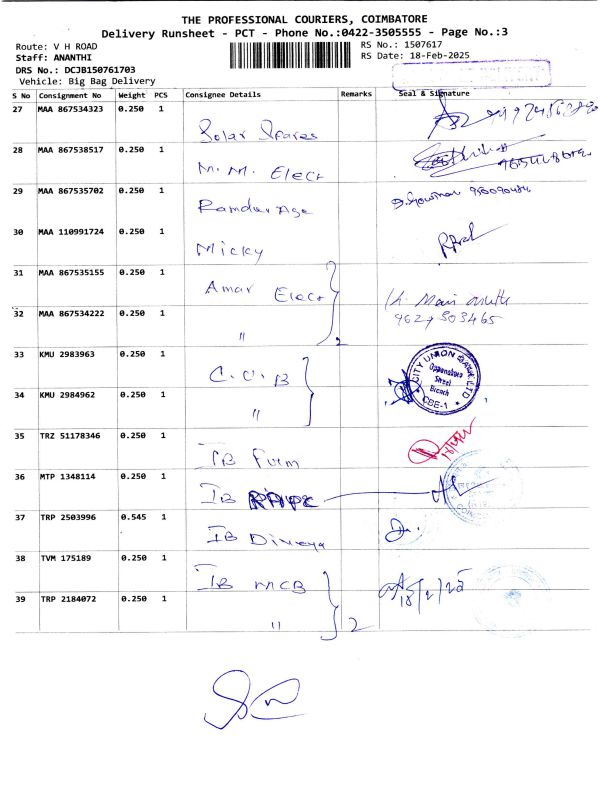 THE PROFESSIONAL COURIERS, COIMBATORE
Delivery Runsheet - PCT - Phone No.:0422-3505555 - Page No.:3
Route: V H ROAD
RS No.: 1507617
Staff: ANANTHI
RS Date: 18-Feb-2025
DRS No.: DCJB150761703
Vehicle: Big Bag Delivery
S No Consignment No Weight PCS Consignee Details Remarks Seal & Signature
27 MAA 867534323 0.250 1
Solar Spares
28 MAA 867538517 0.250 1
M.M. Elect
29 MAA 867535702 0.250 1
Ramdev Age
30 MAA 110991724 0.250 1
Micky
31 MAA 867535155 0.250 1
Amar Elect
32 MAA 867534222 0.250 1
" 2
9627303465
33 KMU 2983963 0.250 1
C.U.B
CITY UNION BANK LTD
Oppanakara
Street
Branch
CBE-1
34 KMU 2984962 0.250 1
"
35 TRZ 51178346 0.250 1
IB Furm
36 MTP 1348114 0.250 1
IB
37 TRP 2503996 0.545 1
IB
38 TVM 175189 0.250 1
IB MCB
18/2/25
39 TRP 2184072 0.250 1
" 2